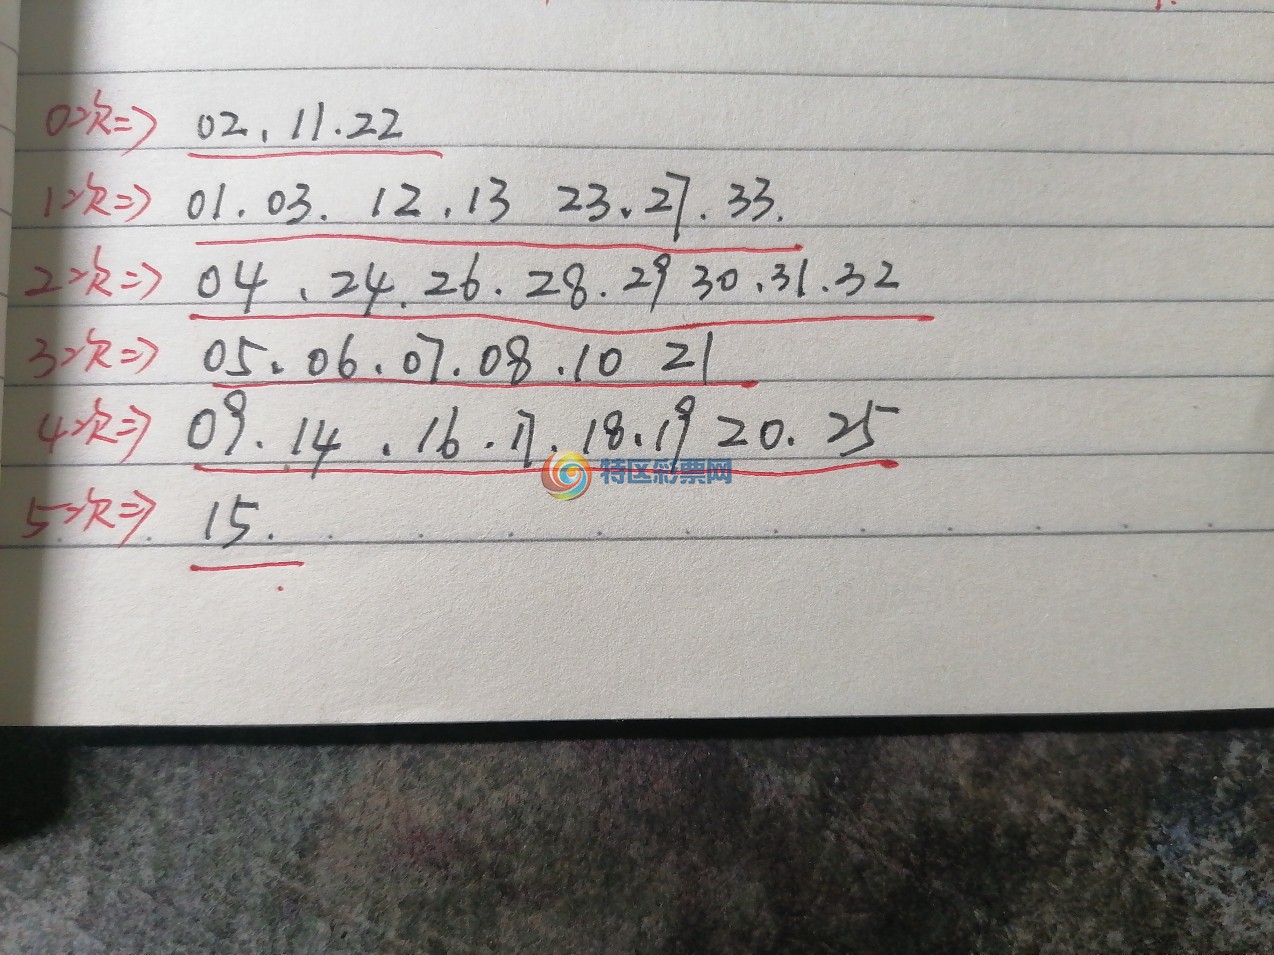 0次=> 02.11.22
1次=> 01.03. 12.13 23.27.33.
2次=> 04.24.26.28.29 30.31.32
3次=> 05.06.07.08.10 21
4次=> 09.14.16.17.18.19 20.25
特区彩票网
5次=> 15.